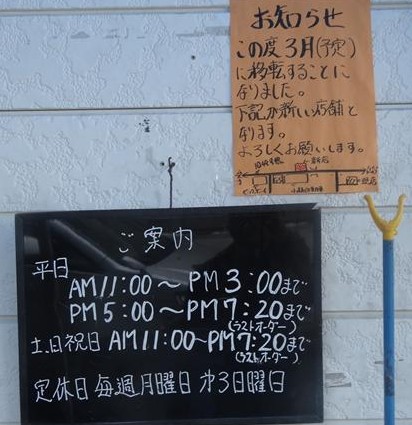 お知らせ
この度3月(予定)
に移転することに
なりました。
下記が新しい店舗と
なります。
よろしくお願いします。
ご案内
平日
AM11:00～PM3:00まで
PM5:00～PM7:20まで
(ラストオーダー)
土、日祝日 AM11:00～PM7:20まで
(ラストオーダー)
定休日毎週月曜日 第3日曜日